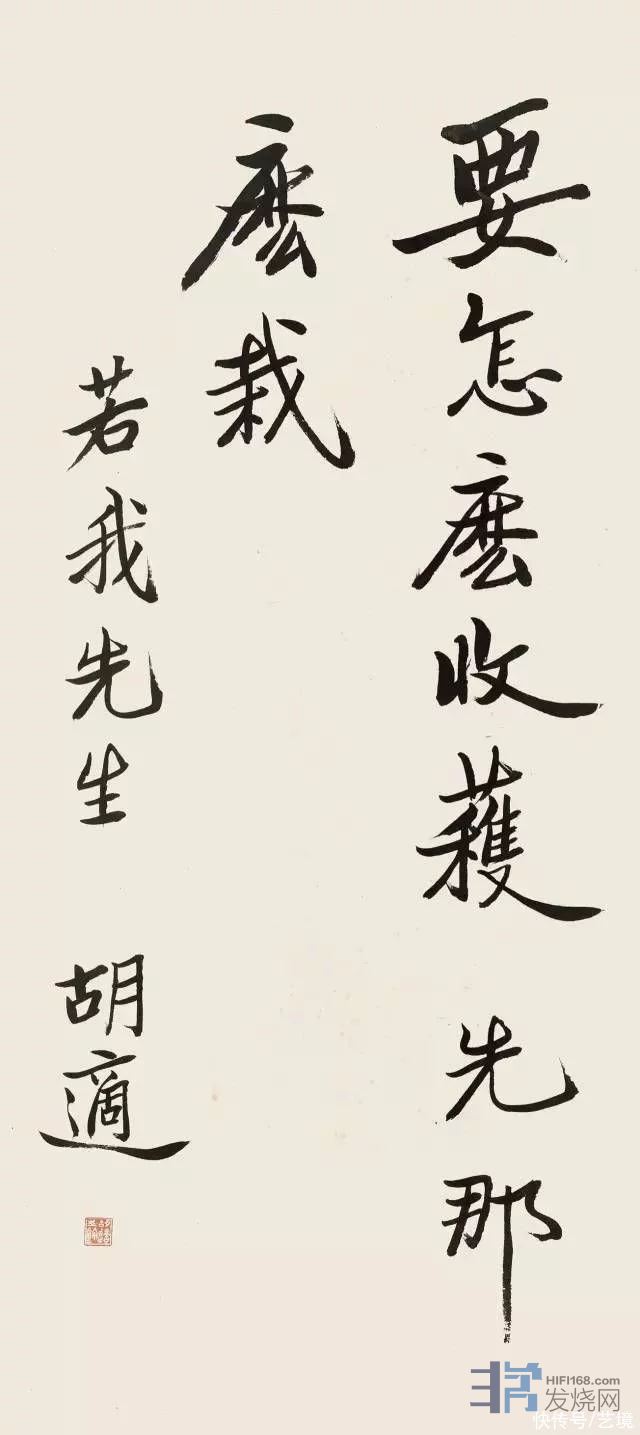 要怎麽收穫 先那
麽栽
若我先生 胡適
HIFI168.com
发烧网
快传号/艺境